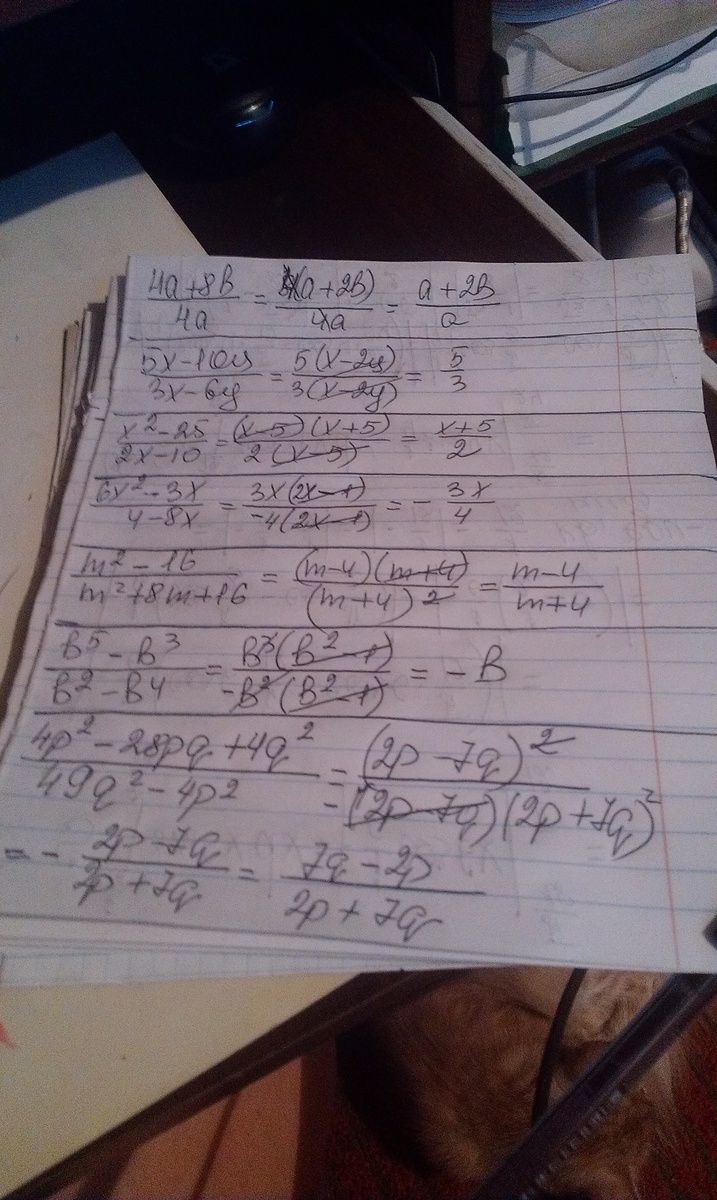 (4a+8b)/(4a) = (4(a+2b))/(4a) = (a+2b)/a
(5x-10y)/(3x-6y) = (5(x-2y))/(3(x-2y)) = 5/3
(x²-25)/(2x-10) = ((x-5)(x+5))/(2(x-5)) = (x+5)/2
(6x²-3x)/(4-8x) = (3x(2x-1))/(-4(2x-1)) = - 3x/4
(m²-16)/(m²+8m+16) = ((m-4)(m+4))/((m+4)²) = (m-4)/(m+4)
(b⁵-b³)/(b²-b⁴) = (b³(b²-1))/(-b²(b²-1)) = -b
(4p²-28pq+4q²)/(49q²-4p²) = ((2p-7q)²)/(-(2p-7q)(2p+7q)²)
= - (2p-7q)/(2p+7q) = (7q-2p)/(2p+7q)